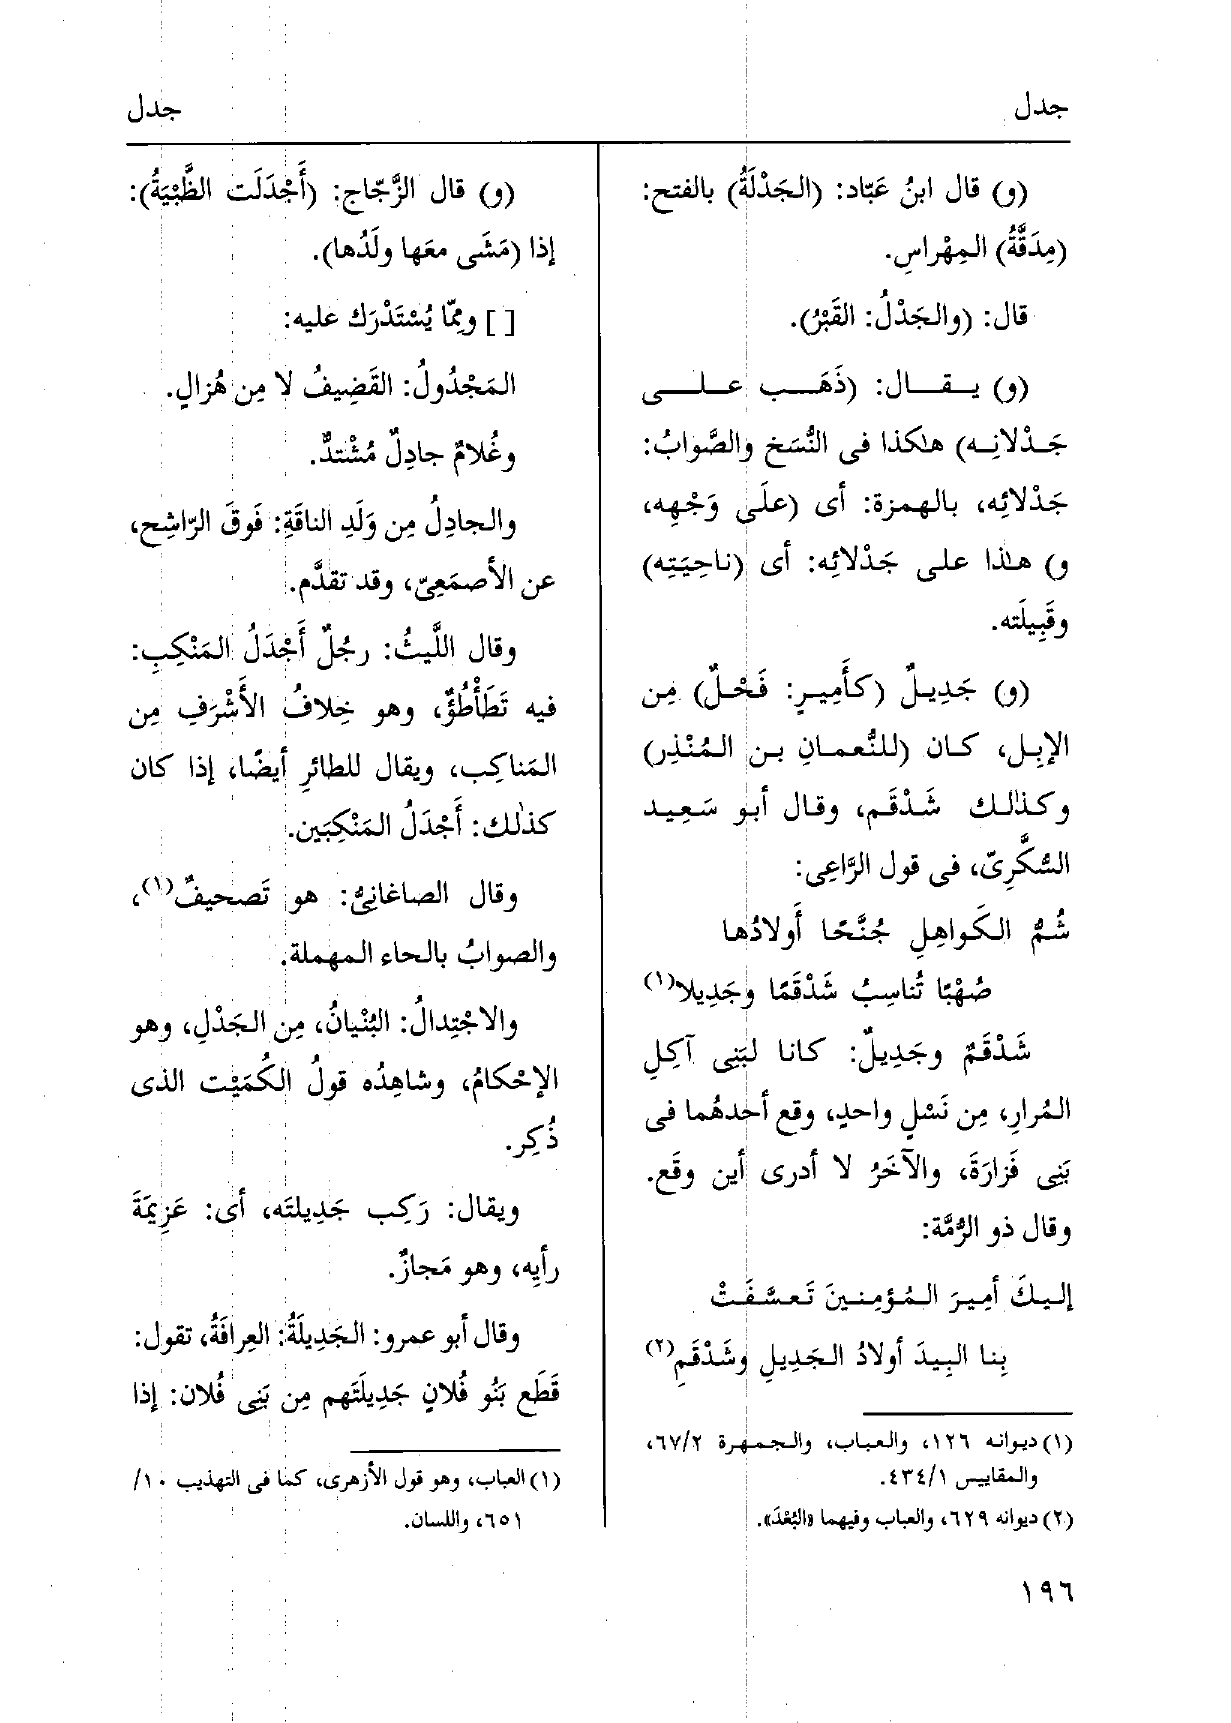 جدل
جدل
(و) قال ابنُ عَبّاد: (الجَدْلَةُ) بالفتح:
(مِدَقَّةُ) المِهْراسِ.
قال: (والجَدْلُ: القَبْرُ).
(و) يـقـال: (ذَهَـب عـلـى
جَـدْلانِـه) هـٰكذا فى النُّسَخِ والصَّوابُ:
جَدْلائِه، بالهمزة: أى (علَى وَجْهِه،
و) هـٰذا على جَدْلائِه: أى (ناحِيَتِه)
وقَبِيلَته.
(و) جَدِيلٌ (كأَمِيرٍ: فَحْلٌ) مِن
الإبِل، كـان (للنُّعمـانِ بـن المُنْذِر)
وكـذٰلـك شَدْقَـم، وقال أبـو سَعِيـد
السُّكَّرِىّ، فى قول الرَّاعِى:
شُمُّ الكَواهِلِ جُنَّحًا أَولادُها
صُهْبًا تُناسِبُ شَدْقَمًا وجَدِيلا(١)
شَدْقَمٌ وجَدِيلٌ: كانا لبَنِى آكِلِ
المُرارِ، مِن نَسْلٍ واحدٍ، وقع أحدهُما فى
بَنِى فَزارَةَ، والآخَرُ لا أدرى أين وقَع.
وقال ذو الرُّمَّة:
إليكَ أمِيرَ المُؤمِنينَ تَعسَّفَتْ
بِنا البِيدَ أولادُ الجَدِيلِ وشَدْقَمِ(٢)
(١) ديوانه ١٢٦، والعباب، والجمهرة ٦٧/٢،
والمقاييس ٤٣٤/١.
(٢) ديوانه ٦٢٩، والعباب وفيهما «البُعْدَ».
(و) قال الزَّجّاج: (أَجْدَلَت الظَّبْيَةُ):
إذا (مَشَى معَها ولَدُها).
[ ] ومِمّا يُسْتَدْرَك عليه:
المَجْدُولُ: القَضِيفُ لا مِن هُزالٍ.
وغُلامٌ جادِلٌ مُشْتدٌّ.
والجادِلُ مِن وَلَدِ الناقَةِ: فَوقَ الرّاشِح،
عن الأصمَعِىّ، وقد تقدَّم.
وقال اللَّيثُ: رجُلٌ أَجْدَلُ المَنْكِبِ:
فيه تَطَأْطُؤٌ، وهو خِلافُ الأَشْرَفِ مِن
المَناكِب، ويقال للطائرِ أيضًا، إذا كان
كذٰلك: أَجْدَلُ المَنْكِبَين.
وقال الصاغانِىُّ: هو تَصحيفٌ(١)،
والصوابُ بالحاء المهملة.
والاجْتِدالُ: البُنْيانُ، مِن الجَدْلِ، وهو
الإحْكامُ، وشاهِدُه قولُ الكُمَيْت الذى
ذُكِر.
ويقال: رَكِب جَدِيلتَه، أى: عَزِيمَةَ
رأيِه، وهو مَجازٌ.
وقال أبو عمرو: الجَدِيلَةُ: العِرافَةُ، تقول:
قَطَع بَنُو فُلانٍ جَدِيلَتَهم مِن بَنِى فُلان: إذا
(١) العباب، وهو قول الأزهرى، كما فى التهذيب ١٠/
٦٥١، واللسان.
١٩٦